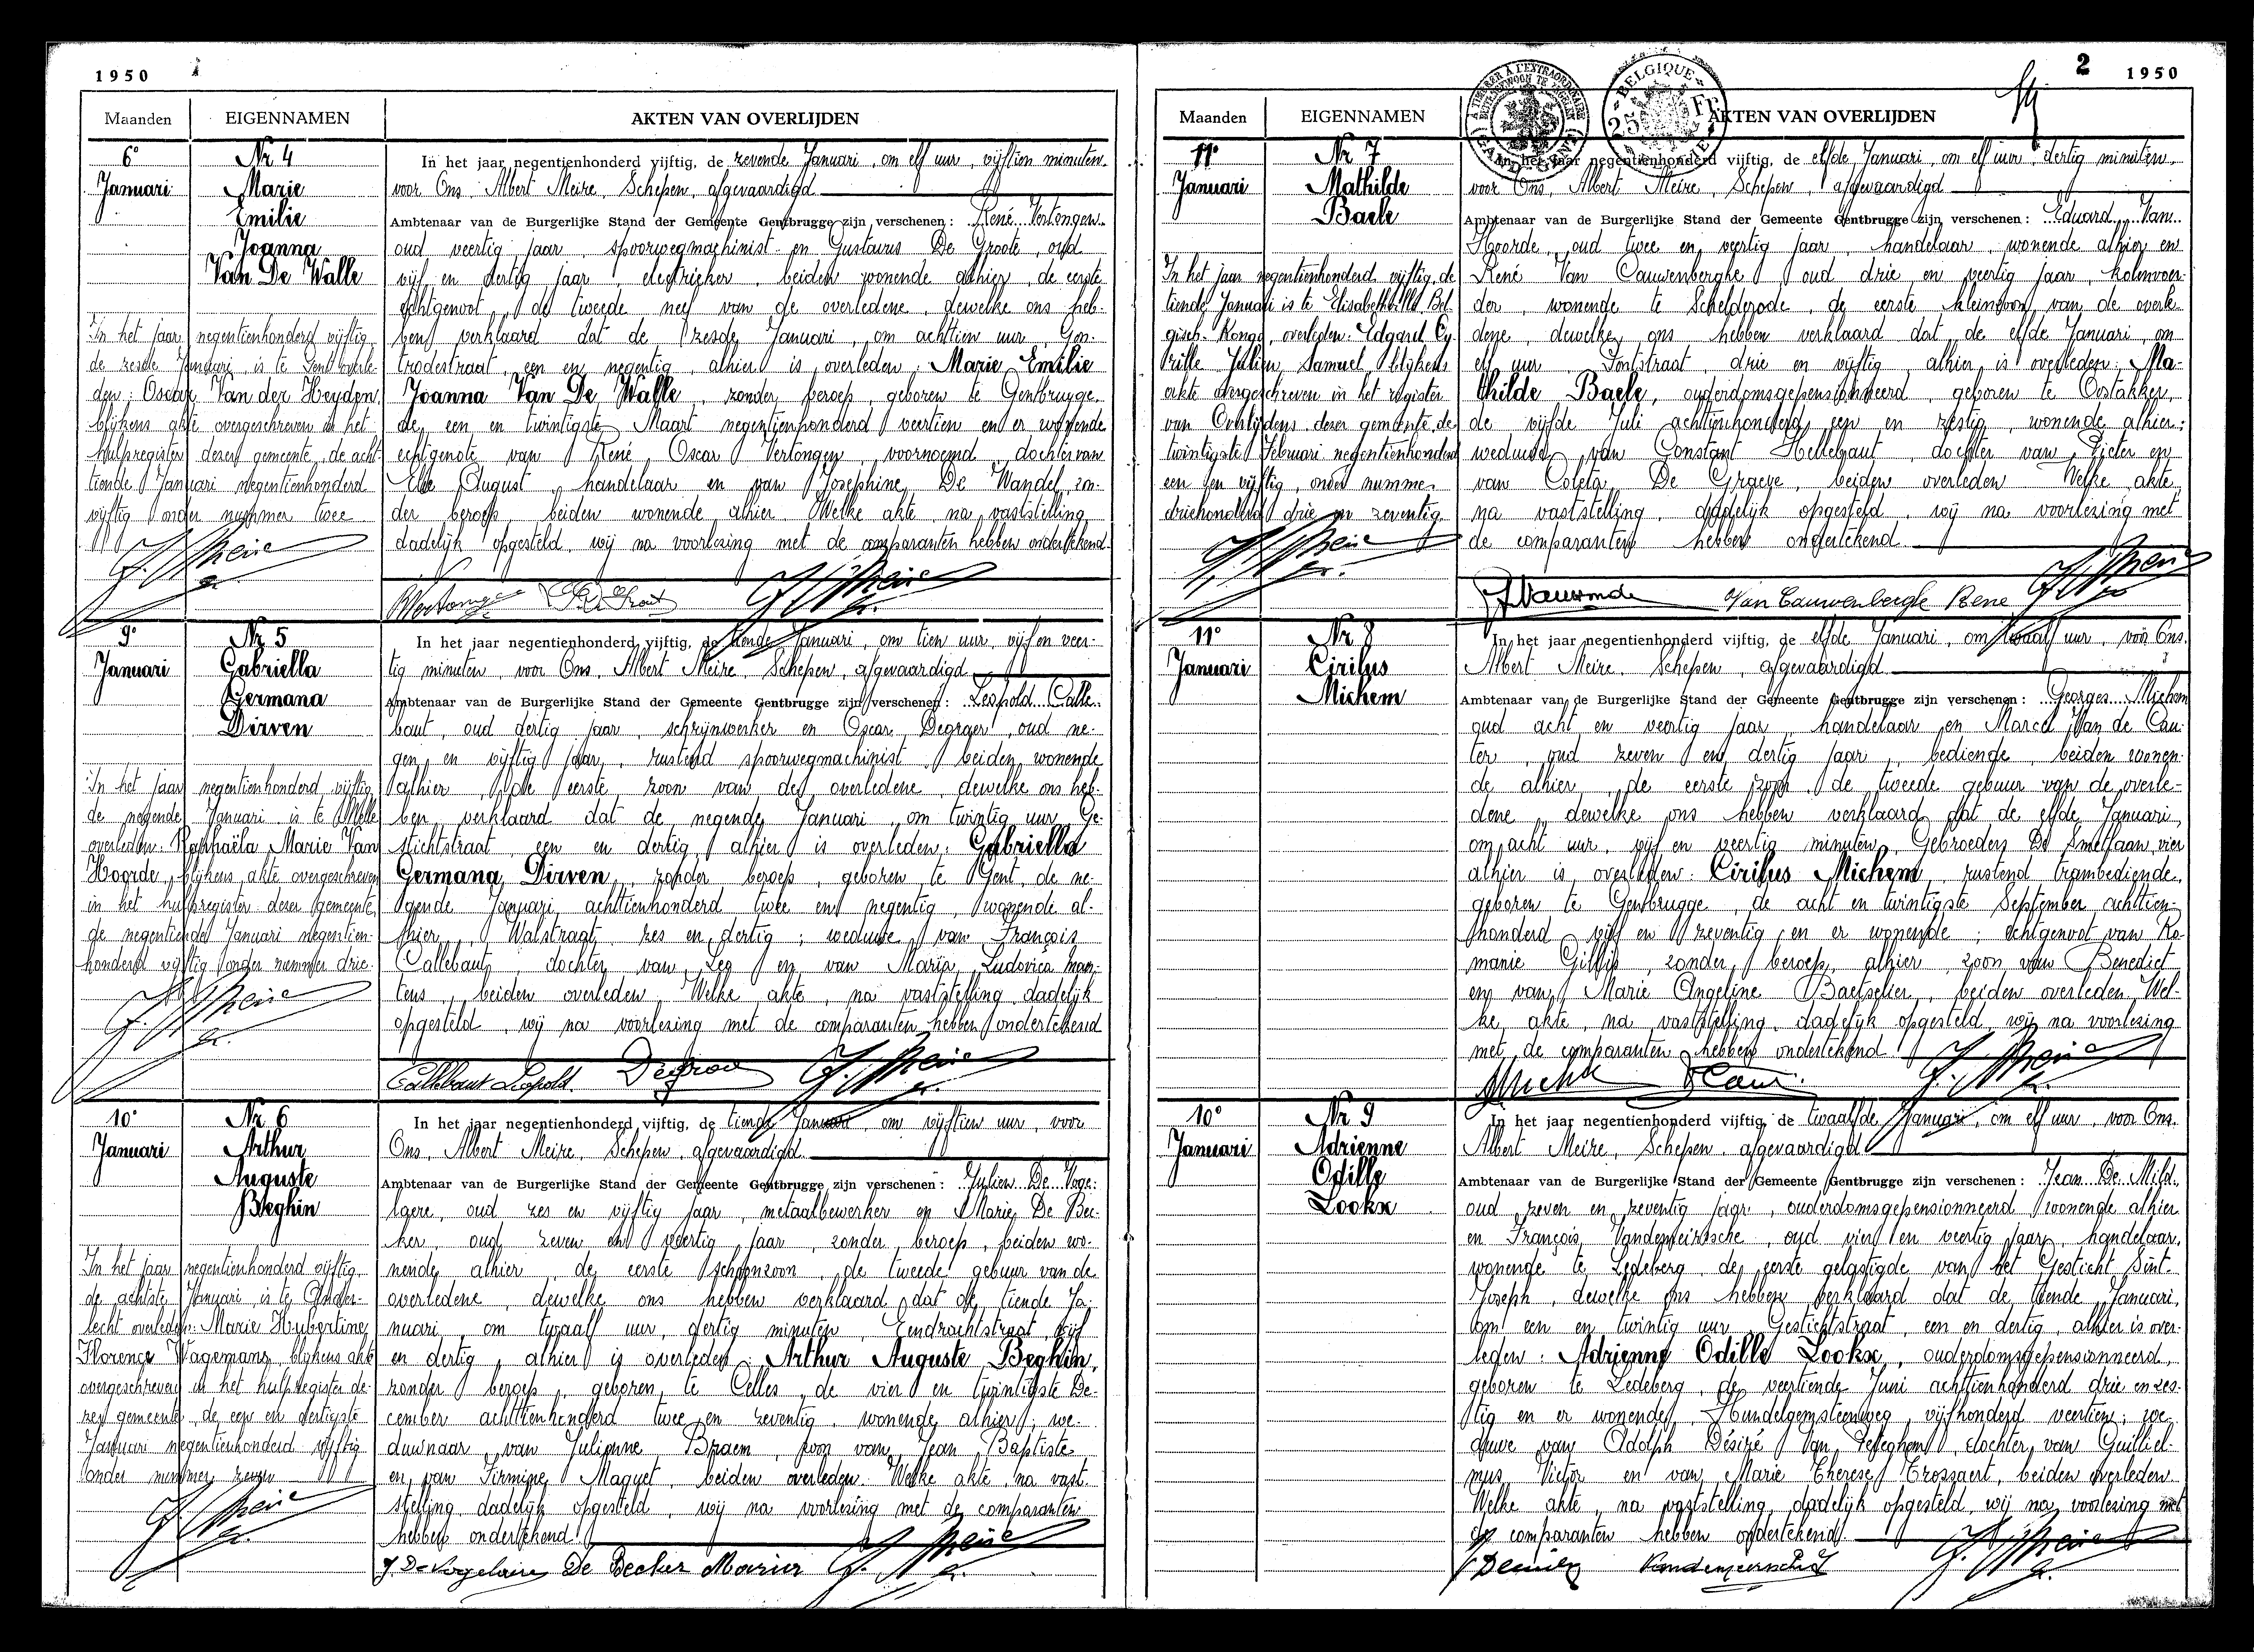 1950
Maanden
EIGENNAMEN
AKTEN VAN OVERLIJDEN
6°
Januari
Nr 4
Marie
Emilie
Joanna
Van De Walle
In het jaar negentienhonderd vijftig,
de zesde Januari, is te Gent overle-
den: Oscar Van der Heyden,
blijkens akte overgeschreven in het
hulpregister dezer gemeente, de acht-
tiende Januari negentienhonderd
vijftig onder nummer twee.
In het jaar negentienhonderd vijftig, de zevende Januari, om elf uur, vijftien minuten
voor Ons, Albert Meire, Schepen, afgevaardigd
Ambtenaar van de Burgerlijke Stand der Gemeente Gentbrugge zijn verschenen: René Vertongen
oud veertig jaar, spoorwegmachinist en Gustavus De Groote, oud
vijf en dertig jaar, electrieker, beiden wonende alhier, de eerste
echtgenoot, de tweede neef van de overledene, dewelke ons heb-
ben verklaard dat de zesde Januari, om achttien uur, Gon-
trodestraat, een en negentig, alhier is overleden: Marie Emilie
Joanna Van De Walle, zonder beroep, geboren te Gentbrugge,
de een en twintigste Maart negentienhonderd veertien en er wonende
echtgenote van René Oscar Vertongen, voornoemd, dochter van
August, handelaar en van Josephine De Wandel, zon-
der beroep, beiden wonende alhier. Welke akte, na vaststelling,
dadelijk opgesteld, wij na voorlezing met de comparanten hebben ondertekend.
9°
Januari
Nr 5
Gabriella
Germana
Dirven
In het jaar negentienhonderd vijftig,
de negende Januari, is te Melle
overleden: Raphaëla Marie Van
Hoorde, blijkens akte overgeschreven
in het hulpregister dezer gemeente,
de negentiende Januari negentien-
honderd vijftig onder nummer drie.
In het jaar negentienhonderd vijftig, de tiende Januari, om tien uur, vijf en veer-
tig minuten, voor Ons, Albert Meire, Schepen, afgevaardigd
Ambtenaar van de Burgerlijke Stand der Gemeente Gentbrugge zijn verschenen: Leopold Calle-
baut, oud dertig jaar, schrijnwerker en Oscar Degraer, oud ne-
gen en vijftig jaar, rustend spoorwegmachinist, beiden wonende
alhier, de eerste zoon van de overledene, dewelke ons heb-
ben verklaard dat de negende Januari, om twintig uur, Ge-
stichtstraat, een en dertig, alhier is overleden: Gabriella
Germana Dirven, zonder beroep, geboren te Gent, de ne-
gende Januari achttienhonderd twee en negentig, wonende al-
hier, Walstraat, zes en dertig; weduwe van François
Callebaut, dochter van Leo en van Maria Ludovica Maer-
tens, beiden overleden. Welke akte, na vaststelling, dadelijk
opgesteld, wij na voorlezing met de comparanten hebben ondertekend
Callebaut Leopold
10°
Januari
Nr 6
Arthur
Auguste
Beghin
In het jaar negentienhonderd vijftig,
de achtste Januari, is te Ander-
lecht overleden: Marie Hubertine
Florence Wagemans, blijkens akte
overgeschreven in het hulpregister de-
zer gemeente, de een en dertigste
Januari negentienhonderd vijftig
onder nummer zeven
In het jaar negentienhonderd vijftig, de tiende Januari, om vijftien uur, voor
Ons, Albert Meire, Schepen, afgevaardigd
Ambtenaar van de Burgerlijke Stand der Gemeente Gentbrugge zijn verschenen: Julien De Voge-
laere, oud zes en vijftig jaar, metaalbewerker en Marie De Bec-
ker, oud zeven en veertig jaar, zonder beroep, beiden wo-
nende alhier, de eerste schoonzoon, de tweede gebuur van de
overledene, dewelke ons hebben verklaard dat de tiende Ja-
nuari, om twaalf uur, dertig minuten, Eendrachtstraat, vijf
en dertig, alhier is overleden: Arthur Auguste Beghin,
zonder beroep, geboren te Celles, de vier en twintigste De-
cember achttienhonderd twee en zeventig, wonende alhier; we-
duwnaar van Julienne Braem, zoon van Jean Baptiste
en van Firmine Maquet, beiden overleden. Welke akte, na vast-
stelling, dadelijk opgesteld, wij na voorlezing met de comparanten
hebben ondertekend
J. De Vogelaere De Becker Maria
2
1950
BELGIQUE
25 Fr
Maanden
EIGENNAMEN
AKTEN VAN OVERLIJDEN
11°
Januari
Nr 7
Mathilde
Baele
In het jaar negentienhonderd vijftig, de
tiende Januari is te Elisabethville Bel-
gisch Kongo, overleden: Edgard Cy-
rille Julien Samuel, blijkens
akte overgeschreven in het register
van Overlijdens dezer gemeente, de
twintigste Februari negentienhonderd
een en vijftig, onder nummer
driehonderd drie en zeventig.
In het jaar negentienhonderd vijftig, de elfde Januari, om elf uur, dertig minuten,
voor Ons, Albert Meire, Schepen, afgevaardigd
Ambtenaar van de Burgerlijke Stand der Gemeente Gentbrugge zijn verschenen: Eduard Van
Hoorde, oud twee en veertig jaar, handelaar, wonende alhier en
René Van Cauwenberghe, oud drie en veertig jaar, kolenvoer-
der, wonende te Schelderode, de eerste kleinzoon van de overle-
dene, dewelke ons hebben verklaard dat de elfde Januari, om
elf uur, Pontstraat, drie en vijftig, alhier is overleden: Ma-
thilde Baele, ouderdomsgepensionneerd, geboren te Oostakker,
de vijfde Juli achttienhonderd een en zestig, wonende alhier;
weduwe van Constant Hellebaut, dochter van Pieter en
van Coleta De Graeve, beiden overleden. Welke akte,
na vaststelling, dadelijk opgesteld, wij na voorlezing met
de comparanten hebben ondertekend.
Van Cauwenberghe Rene
11°
Januari
Nr 8
Cirilus
Michem
In het jaar negentienhonderd vijftig, de elfde Januari, om twaalf uur, voor Ons,
Albert Meire, Schepen, afgevaardigd
Ambtenaar van de Burgerlijke Stand der Gemeente Gentbrugge zijn verschenen: Georges Michem
oud acht en veertig jaar, handelaar en Marcel Van de Cau-
ter, oud zeven en dertig jaar, bediende, beiden wonen-
de alhier, de eerste zoon, de tweede gebuur van de overle-
dene, dewelke ons hebben verklaard dat de elfde Januari,
om acht uur, vijf en veertig minuten, Gebroeders De Smetlaan, vier
alhier is overleden: Cirilus Michem, rustend trambediende,
geboren te Gentbrugge, de acht en twintigste September achttien-
honderd vijf en zeventig en er wonende; echtgenoot van Ro-
manie Gillis, zonder beroep, alhier, zoon van Benedict
en van Marie Angeline Baetselier, beiden overleden. Wel-
ke akte, na vaststelling, dadelijk opgesteld, wij na voorlezing
met de comparanten hebben ondertekend.
10°
Januari
Nr 9
Adrienne
Odille
Lookx
In het jaar negentienhonderd vijftig, de twaalfde Januari, om elf uur, voor Ons,
Albert Meire, Schepen, afgevaardigd
Ambtenaar van de Burgerlijke Stand der Gemeente Gentbrugge zijn verschenen: Jean De Mild,
oud zeven en zeventig jaar, ouderdomsgepensionneerd, wonende alhier
en François Vandemeirssche, oud vier en veertig jaar, handelaar,
wonende te Ledeberg, de eerste gelastigde van het Gesticht Sint-
Joseph, dewelke ons hebben verklaard dat de tiende Januari,
om een en twintig uur, Gestichtstraat, een en dertig, alhier is over-
leden: Adrienne Odille Lookx, ouderdomsgepensionneerd,
geboren te Ledeberg, de veertiende Juni achttienhonderd drie en zes-
tig en er wonende, Hundelgemsteenweg, vijfhonderd veertien; we-
duwe van Adolph Désiré Van Peteghem, dochter van Guilliel-
mus Victor en van Marie Therese Trossaert, beiden overleden.
Welke akte, na vaststelling, dadelijk opgesteld, wij na voorlezing met
de comparanten hebben ondertekend.